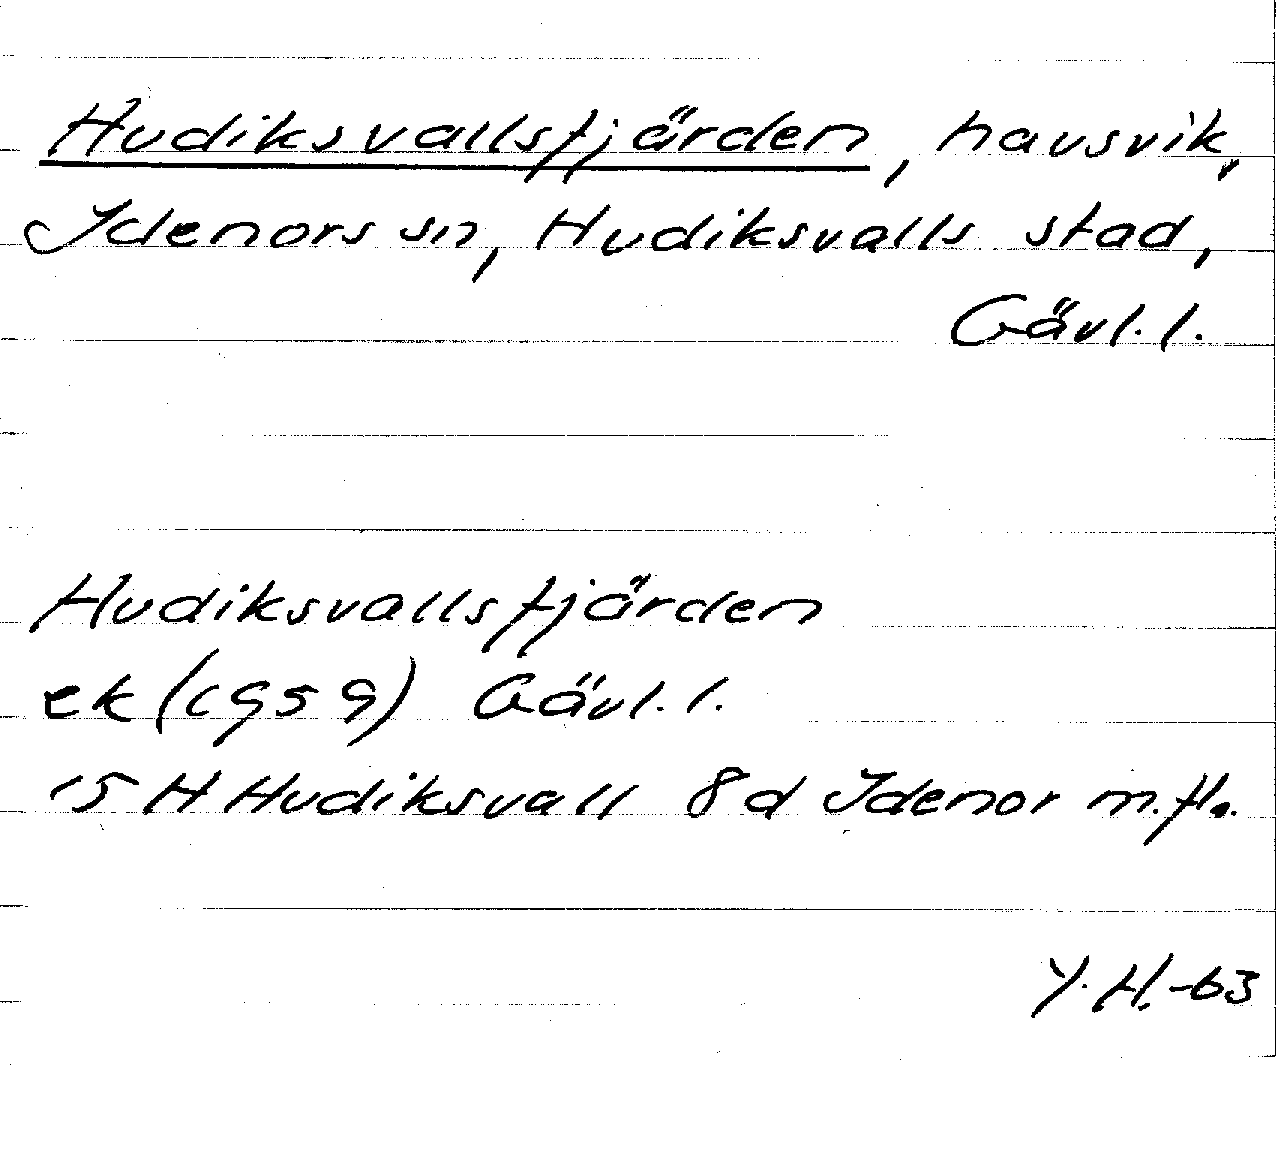 Hudiksvallsfjärden, havsvik,
Idenors sn, Hudiksvalls stad,
Gävl. l.
Hudiksvallsfjärden
ek (c959) Gävl. l.
15 H Hudiksvall 8 d Idenor m.fl.
Y. H. -63